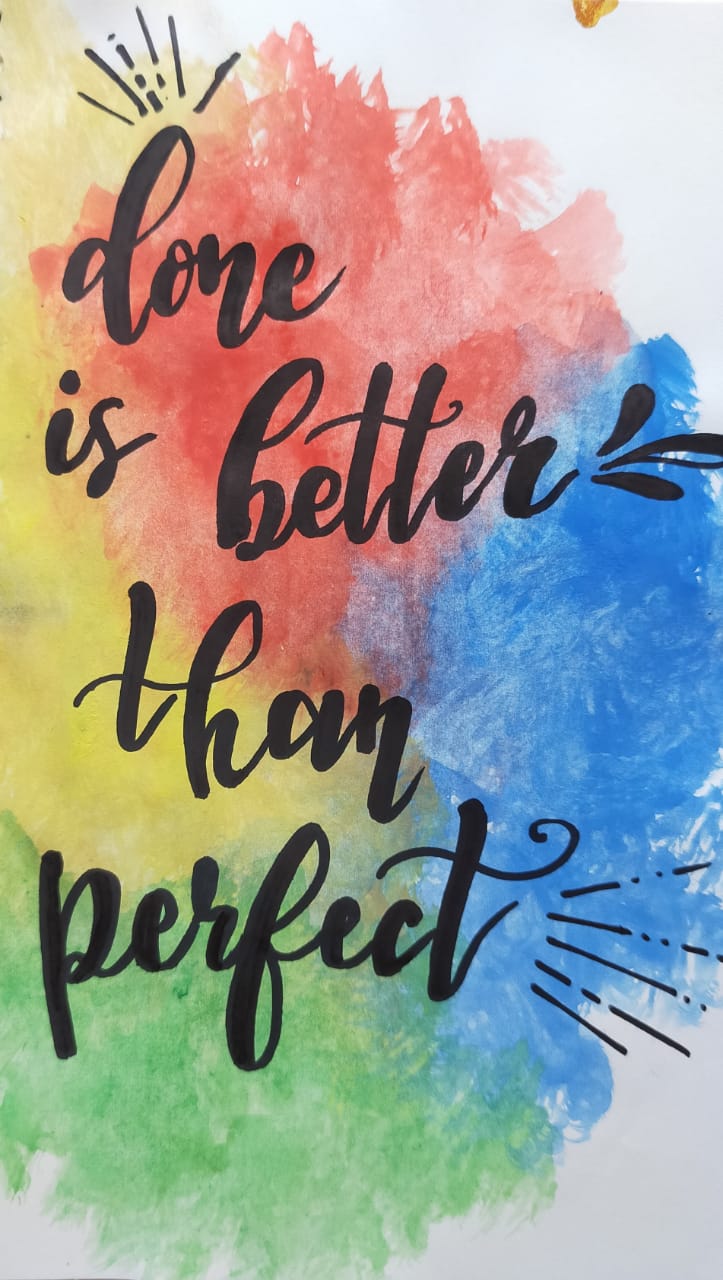 done
is better
than
perfect